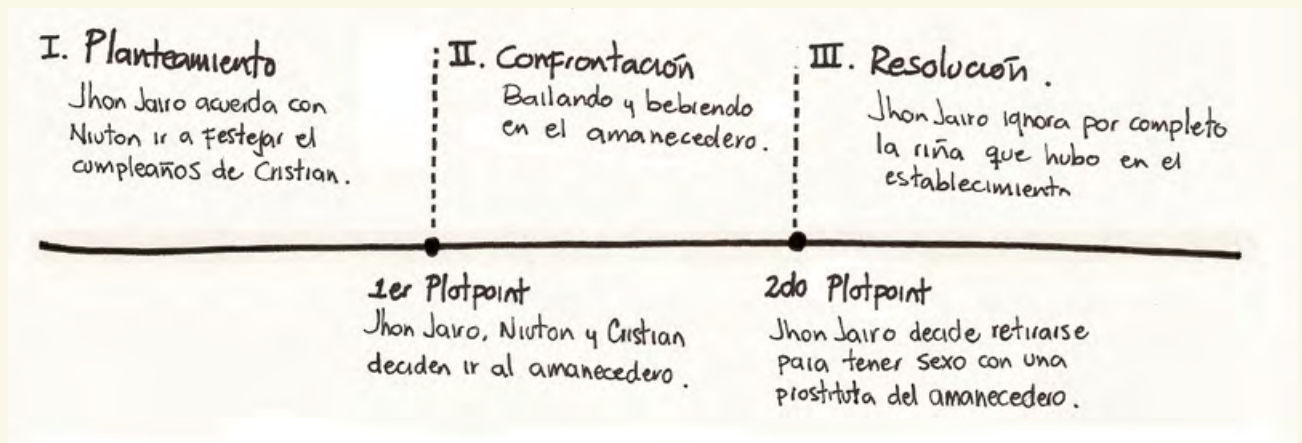 I. Planteamiento
Jhon Jairo acuerda con
Niuton ir a festejar el
cumpleaños de Cristian.
II. Confrontación
Bailando y bebiendo
en el amanecedero.
III. Resolución.
Jhon Jairo ignora por completo
la riña que hubo en el
establecimiento
1er Plotpoint
Jhon Jairo, Niuton y Cristian
deciden ir al amanecedero.
2do Plotpoint
Jhon Jairo decide retirarse
para tener sexo con una
prostituta del amanecedero.